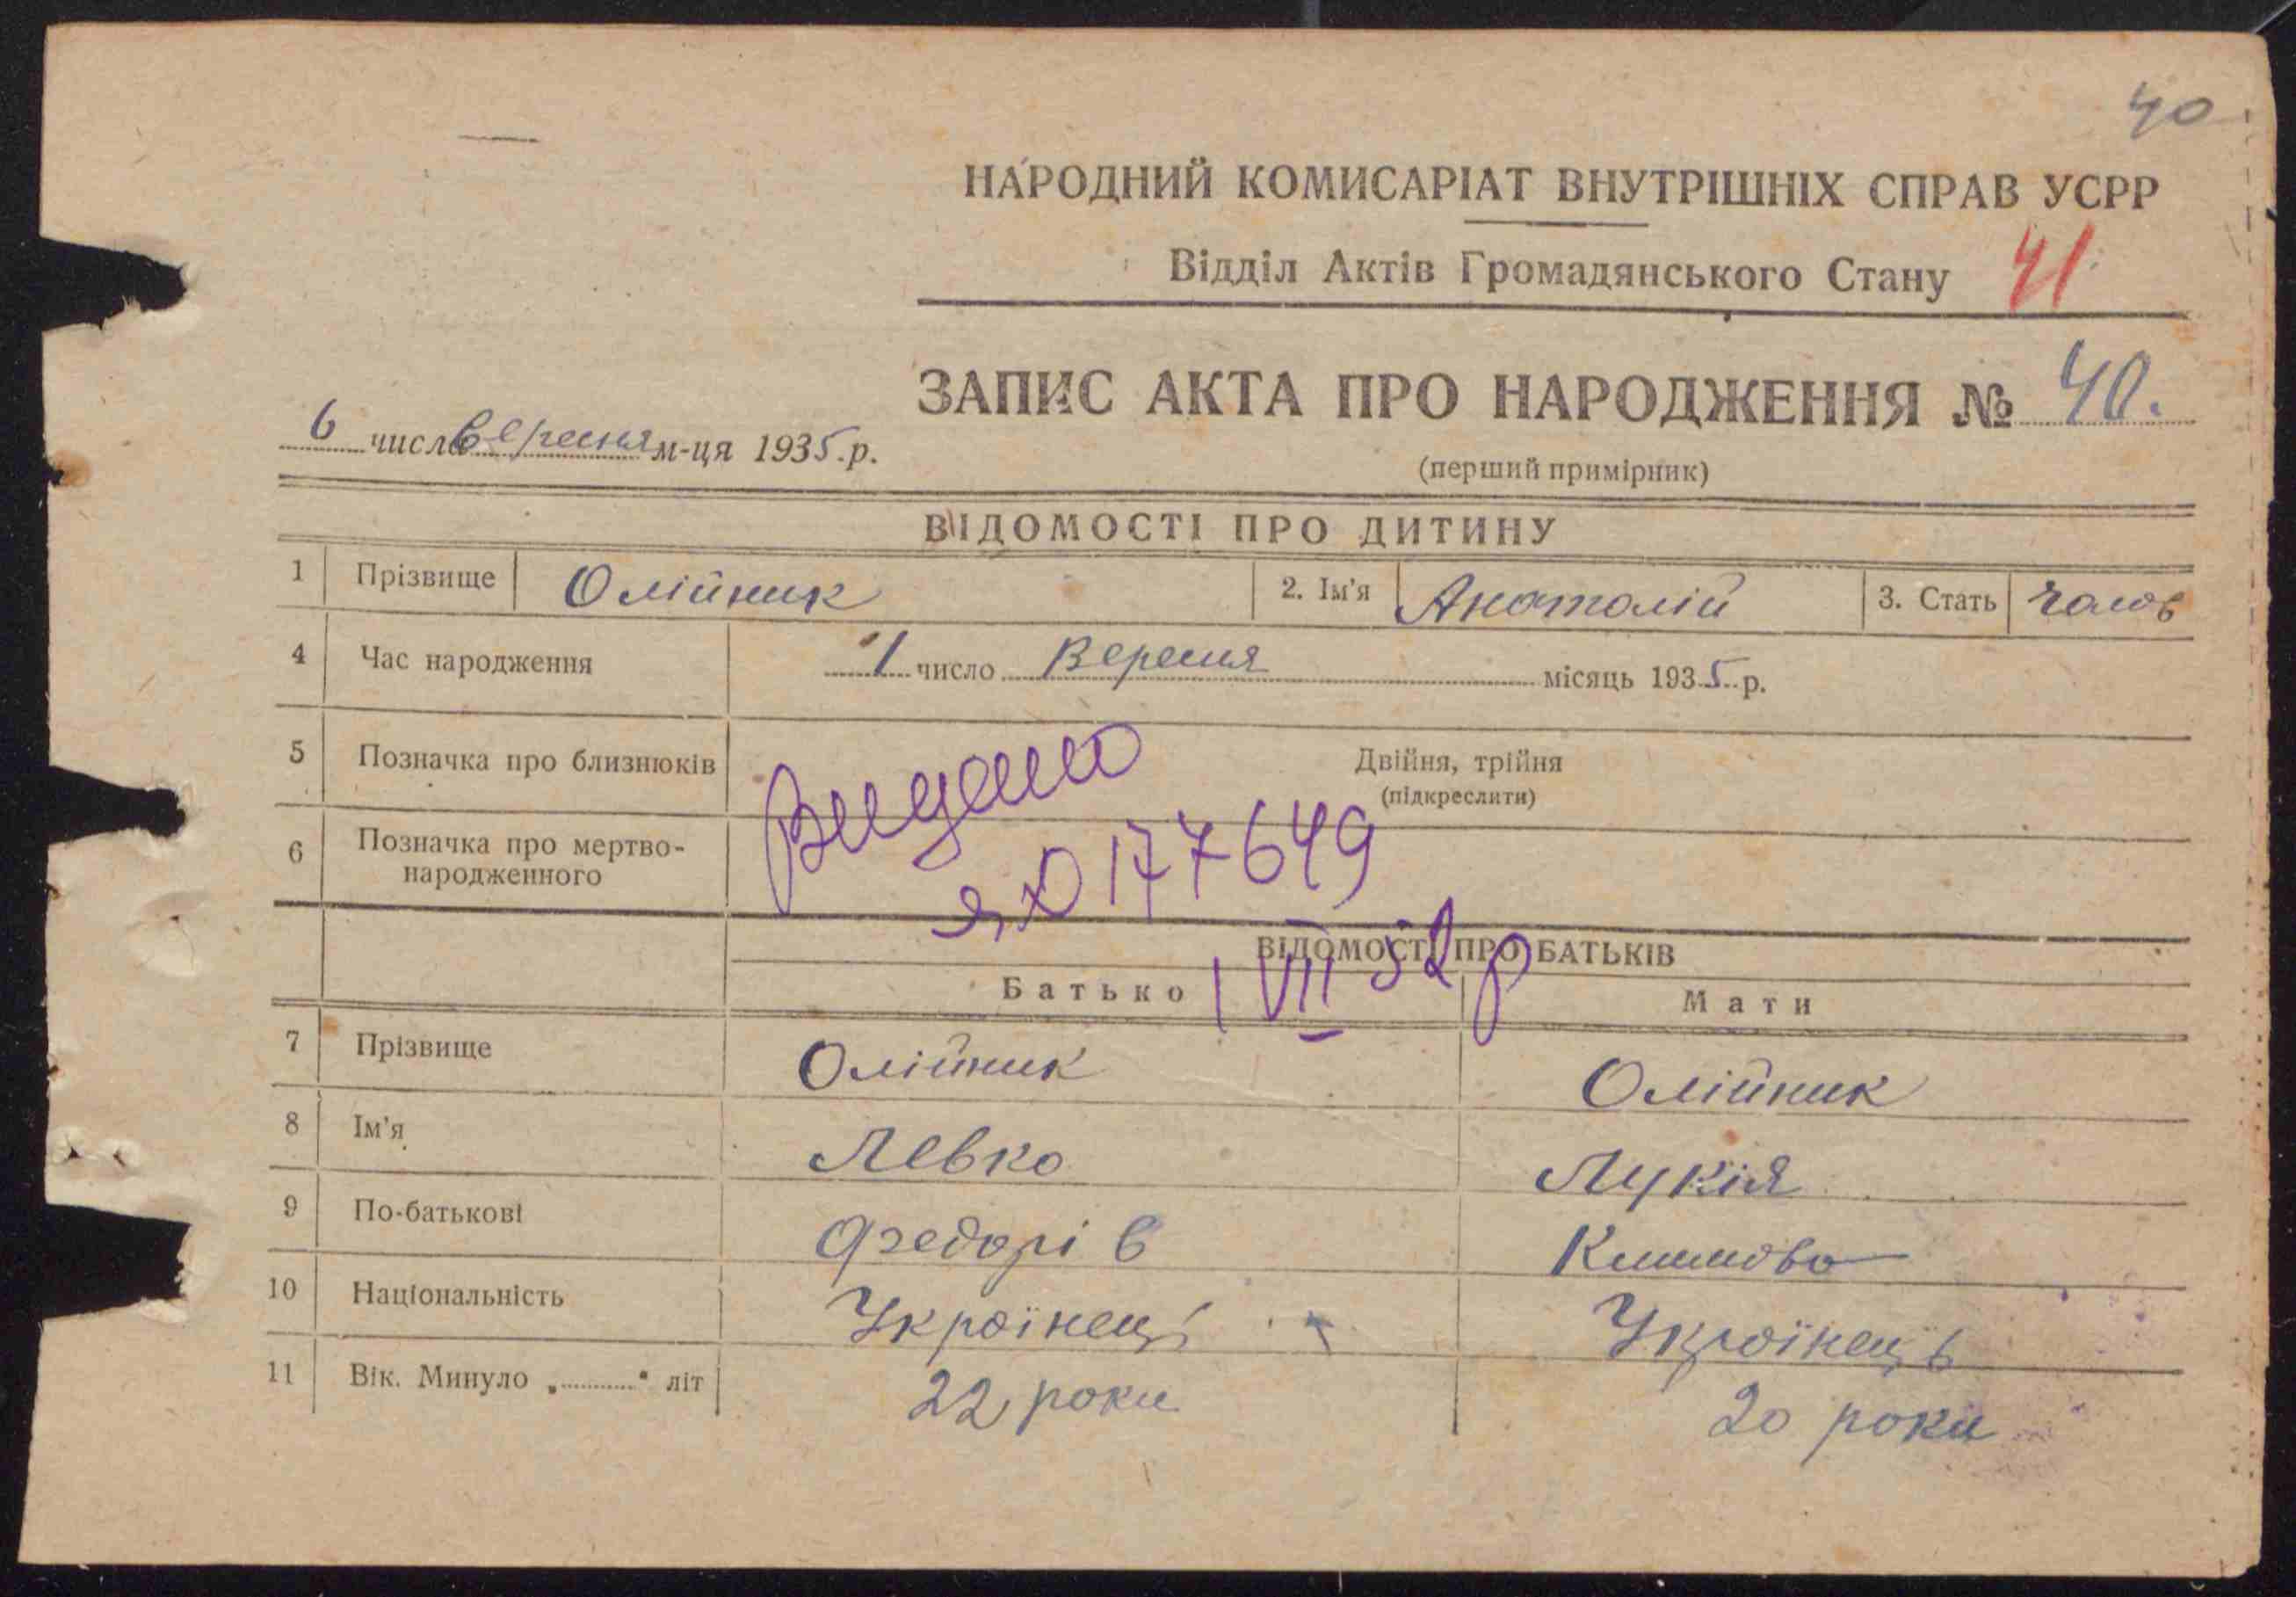 40
НАРОДНИЙ КОМИСАРІАТ ВНУТРІШНІХ СПРАВ УСРР
Відділ Актів Громадянського Стану 41
ЗАПИС АКТА ПРО НАРОДЖЕННЯ № 40.
6 число вересня м-ця 1935.р.
(перший примірник)
ВІДОМОСТІ ПРО ДИТИНУ
1 Прізвище Олійник 2. Ім'я Анатолій 3. Стать чолов
4 Час народження 1 число Вересня місяць 1935 р.
5 Позначка про близнюків Двійня, трійня
(підкреслити)
6 Позначка про мертво-
народженного
Видано
177649
1 VII 52 р
ВІДОМОСТІ ПРО БАТЬКІВ
Батько Мати
7 Прізвище Олійник Олійник
8 Ім'я Левко Лукія
9 По-батькові Федорів Климова
10 Національність Українець Українець
11 Вік. Минуло „..........“ літ 22 роки 20 роки